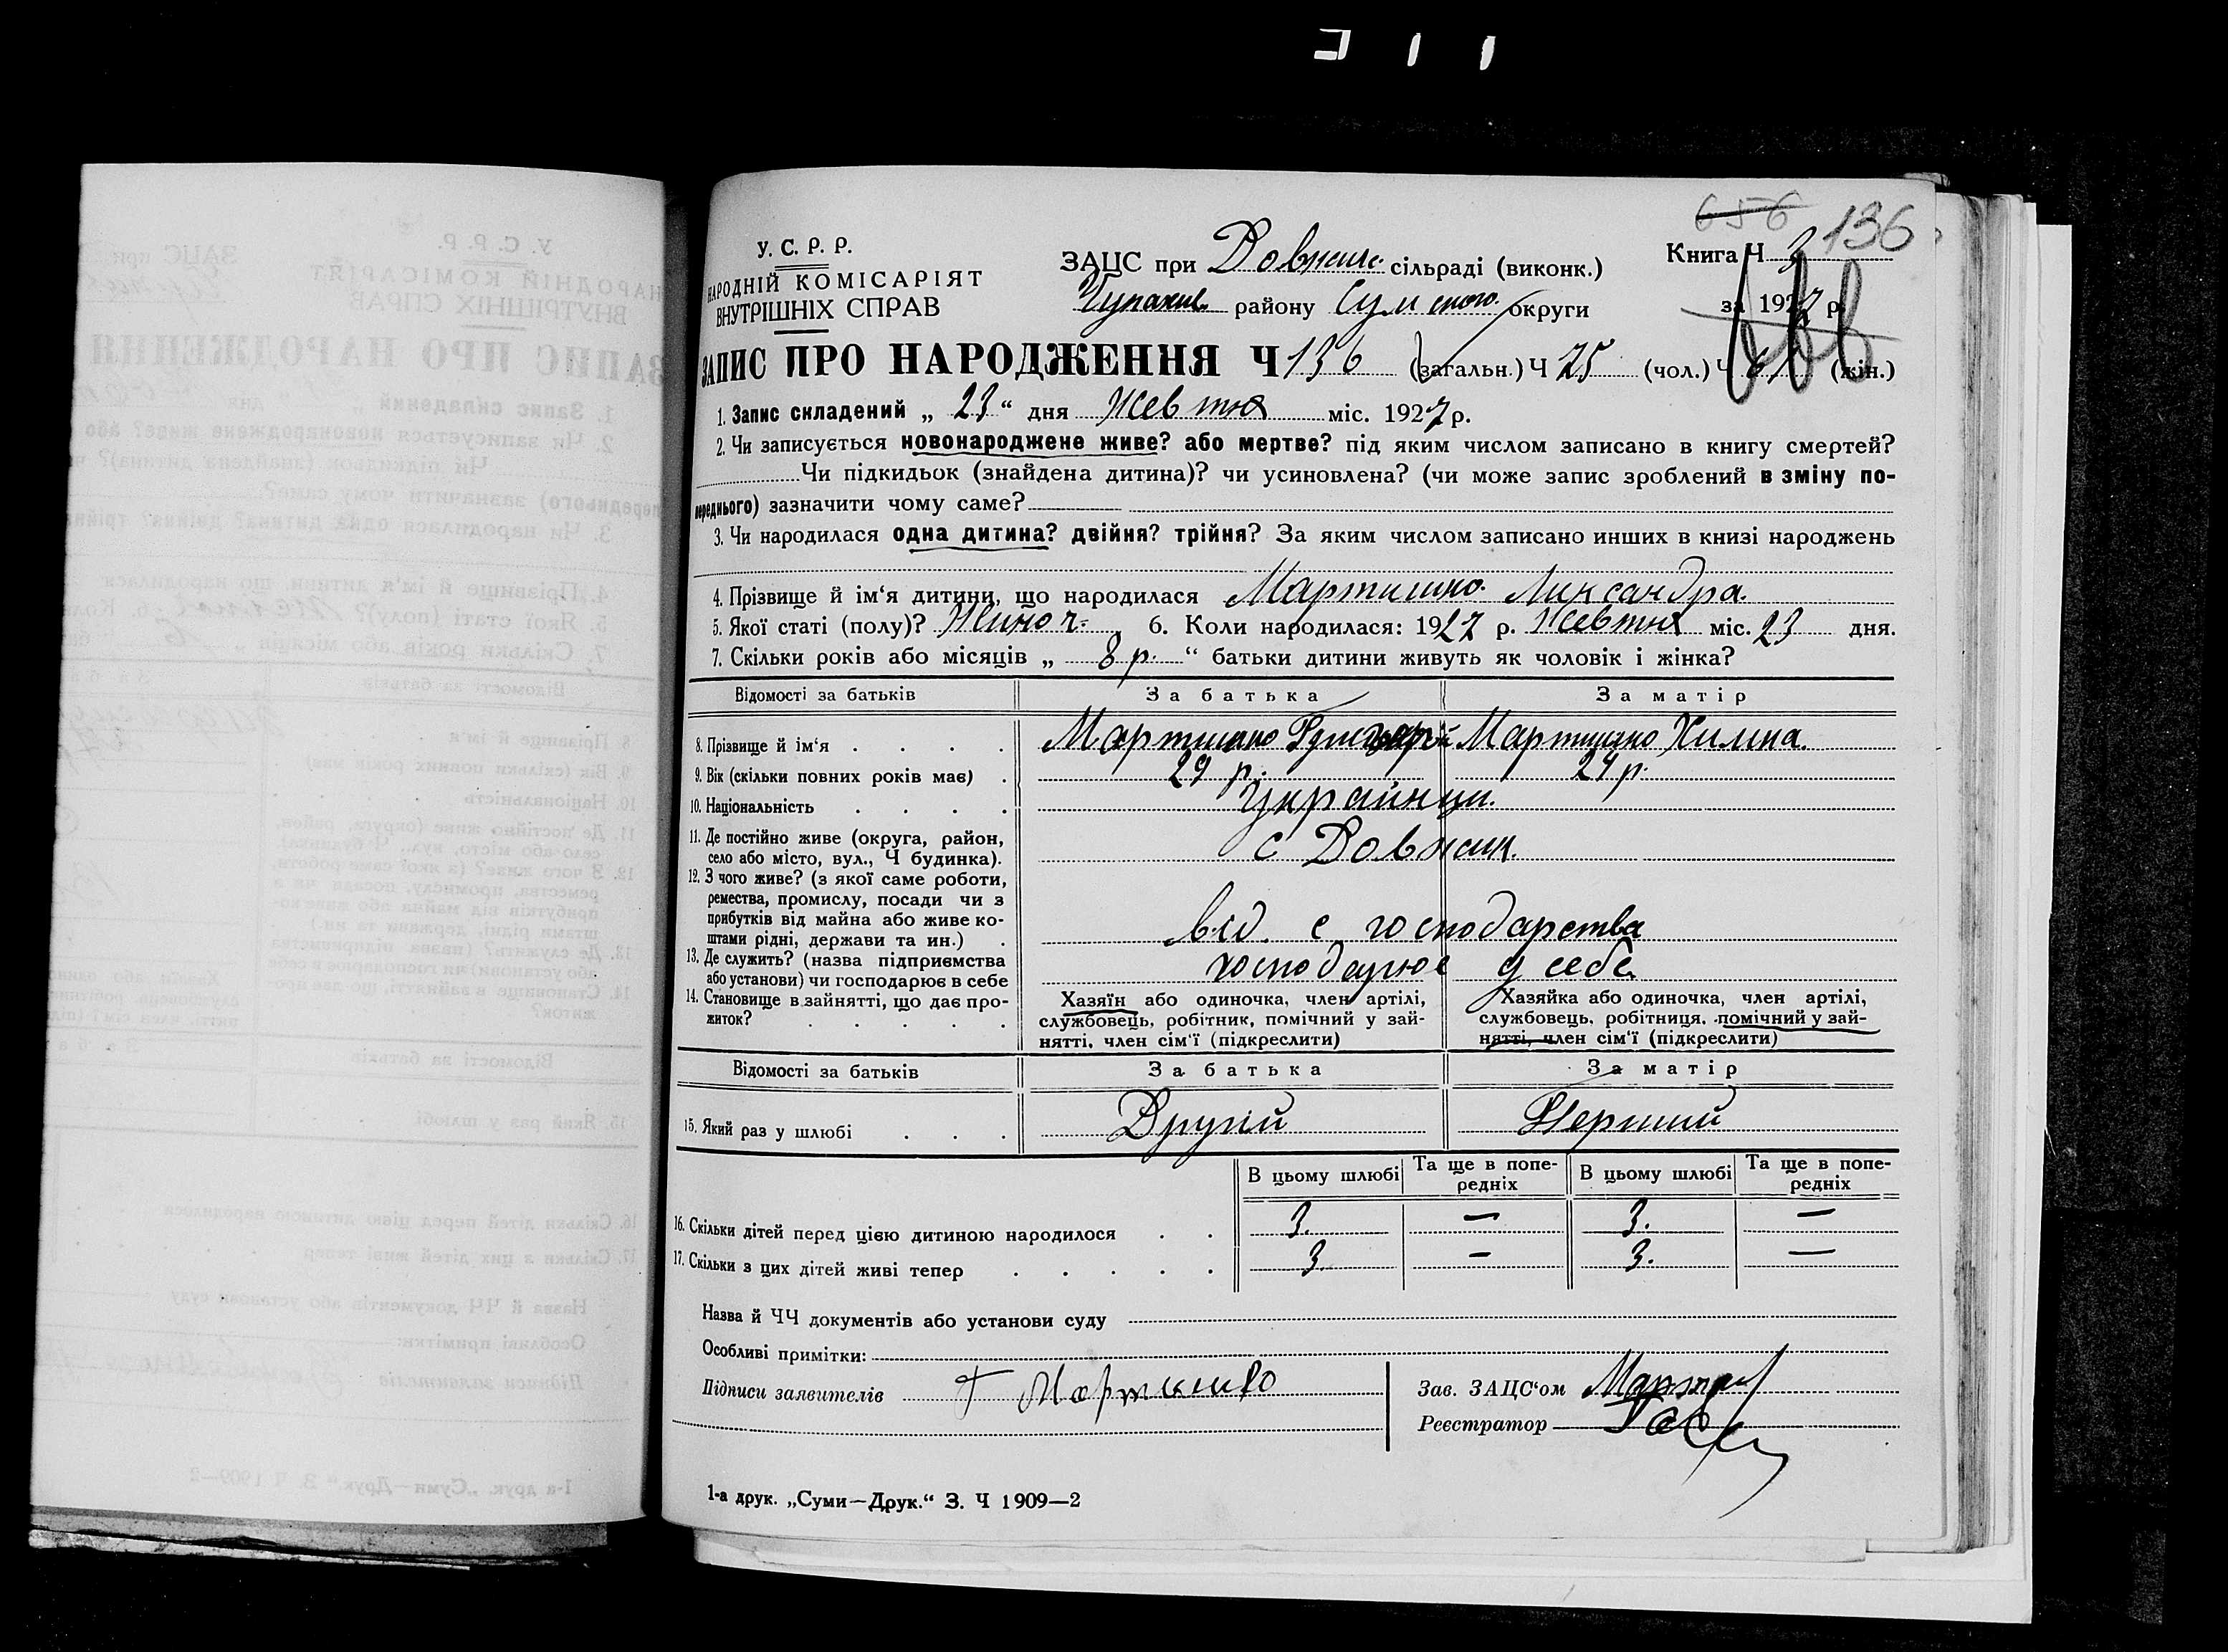 656 136
У. С. Р. Р.
НАРОДНІЙ КОМІСАРІЯТ
ВНУТРІШНІХ СПРАВ
ЗАЦС при Довжик. сільраді (виконк.)
Чупахів. району Сумського округи
Книга Ч 3
за 1927 р.
ЗАПИС ПРО НАРОДЖЕННЯ Ч 136 (загальн.) Ч 75 (чол.) Ч 61 (жін.)
1. Запис складений „ 23 “ дня Жевтня міс. 1927 р.
2. Чи записується новонароджене живе? або мертве? під яким числом записано в книгу смертей?
Чи підкидьок (знайдена дитина)? чи усиновлена? (чи може запис зроблений в зміну по-
переднього) зазначити чому саме?
3. Чи народилася одна дитина? двійня? трійня? За яким числом записано инших в книзі народжень
4. Прізвище й ім‘я дитини, що народилася Мартиненко Лександра.
5. Якої статі (полу)? Жиноч. 6. Коли народилася: 1927 р. Жевтня міс. 23 дня.
7. Скільки років або місяців „ 8 р. “ батьки дитини живуть як чоловік і жінка?
Відомості за батьків За батька За матір
8. Прізвище й ім‘я Григорий Килина.
9. Вік (скільки повних років має) 29 р. 24 р.
10. Національність Украйнци.
11. Де постійно живе (округа, район,
село або місто, вул., Ч будинка). с Довжик.
12. З чого живе? (з якої саме роботи,
ремества, промислу, посади чи з
прибутків від майна або живе ко-
штами рідні, держави та ин.) від. с господарства
13. Де служить? (назва підприємства
або установи) чи господарює в себе господарює у себе
14. Становище в зайнятті, що дає про-
житок?
Хазяїн або одиночка, член артілі,
службовець, робітник, помічний у зай-
нятті, член сім‘ї (підкреслити)
Хазяйка або одиночка, член артілі,
службовець, робітниця, помічний у зай-
нятті, член сім‘ї (підкреслити)
Відомості за батьків За батька За матір
15. Який раз у шлюбі Другий Перший
В цьому шлюбі Та ще в попе-
редніх В цьому шлюбі Та ще в попе-
редніх
16. Скільки дітей перед цією дитиною народилося 3. — 3. —
17. Скільки з цих дітей живі тепер 3. — 3. —
Назва й ЧЧ документів або установи суду
Особливі примітки:
Підписи заявителів Г
Зав. ЗАЦС‘ом
Реєстратор
1-а друк. „Суми—Друк.“ З. Ч 1909—2